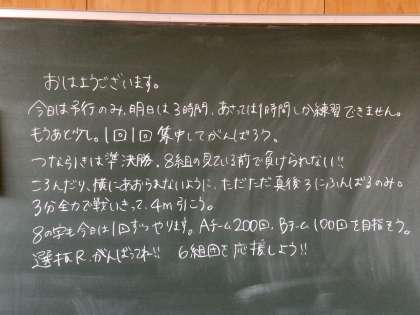 おはようございます。
今日は予行のみ、明日は3時間、あさっては1時間しか練習できません。
もうあと少し。1回1回集中してがんばろう。
つな引きは準決勝、8組の見ている前で負けられない!!
ころんだり、横にあおられないように、ただただ真後ろにふんばるのみ。
3分全力で戦いきって、4m引こう。
8の字も今日は1回ずつやります。Aチーム200回、Bチーム100回を目指そう。
選抜R、がんばってね!! 6組団で応援しよう!!